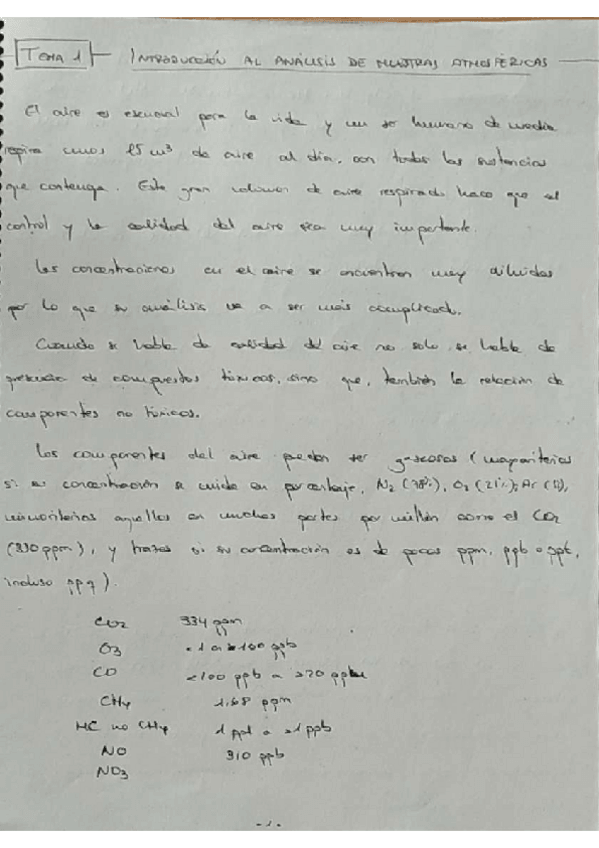 TEMA 1 - INTRODUCCIÓN AL ANÁLISIS DE MUESTRAS ATMOSFÉRICAS
El aire es esencial para la vida y un ser humano de media
respira unos 15 m³ de aire al día, con todas las sustancias
que contenga. Este gran volumen de aire respirado hace que el
control y la calidad del aire sea muy importante.
Las concentraciones en el aire se encuentran muy diluidas
por lo que su análisis va a ser más complicado.
Cuando se habla de calidad del aire no solo se habla de
presencia de compuestos tóxicos, sino que, también la relación de
componentes no tóxicos.
Los componentes del aire pueden ser gaseosos (mayoritarios
si su concentración se mide en porcentaje, N2 (78%), O2 (21%), Ar
minoritarios aquellos en muchas partes por millón como el CO2
(330 ppm), y trazas si su concentración es de pocas ppm, ppb o ppt,
incluso ppq).
CO2 334 ppm
O3 100 ppb
CO <100 ppb a >20
CH4 1,68 ppm
HC no CH4 1 ppt a >1 ppb
NO 310 ppb
NO3
-1-